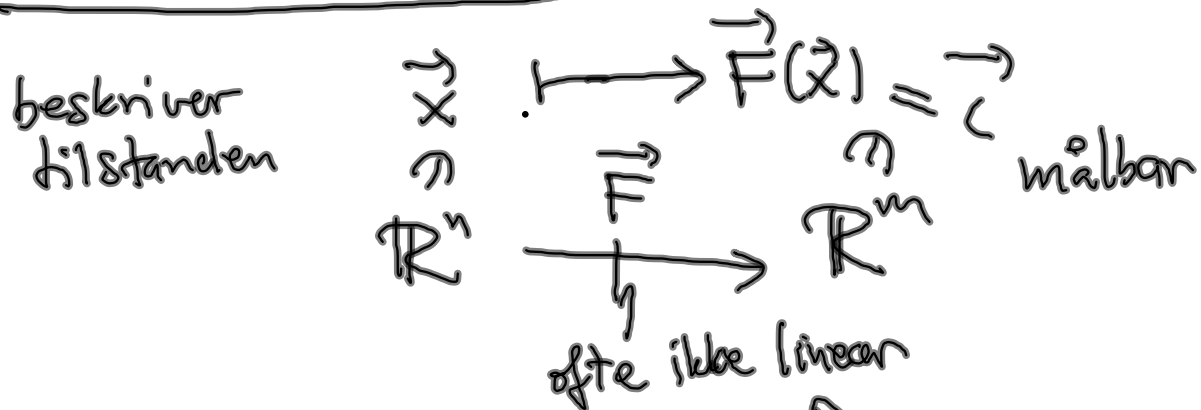 beskriver x⃗ ↦ F⃗(x⃗) = c⃗
tilstanden ∈ F⃗ ∈ målbar
ℝⁿ → ℝᵐ
ofte ikke lineær